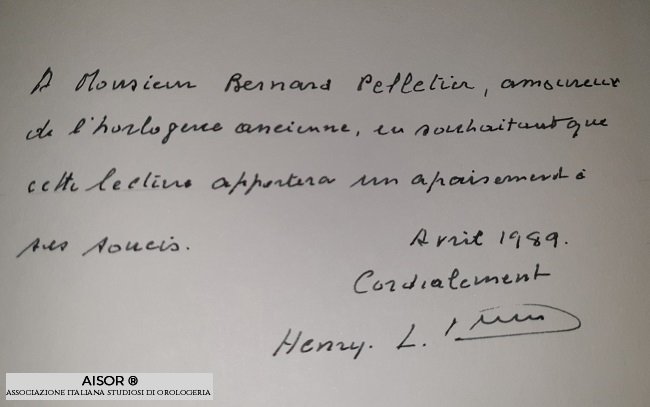 A Monsieur Bernard Pelletier, amoureux
de l'horlogerie ancienne, en souhaitant que
cette lecture apportera un apaisement à
ses soucis.
Avril 1989.
Cordialement
Henry. L.
AISOR ®
ASSOCIAZIONE ITALIANA STUDIOSI DI OROLOGERIA